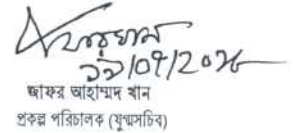 ১১/০৭/২০২৮
জাফর আহাম্মদ খান
প্রকল্প পরিচালক (যুগ্মসচিব)